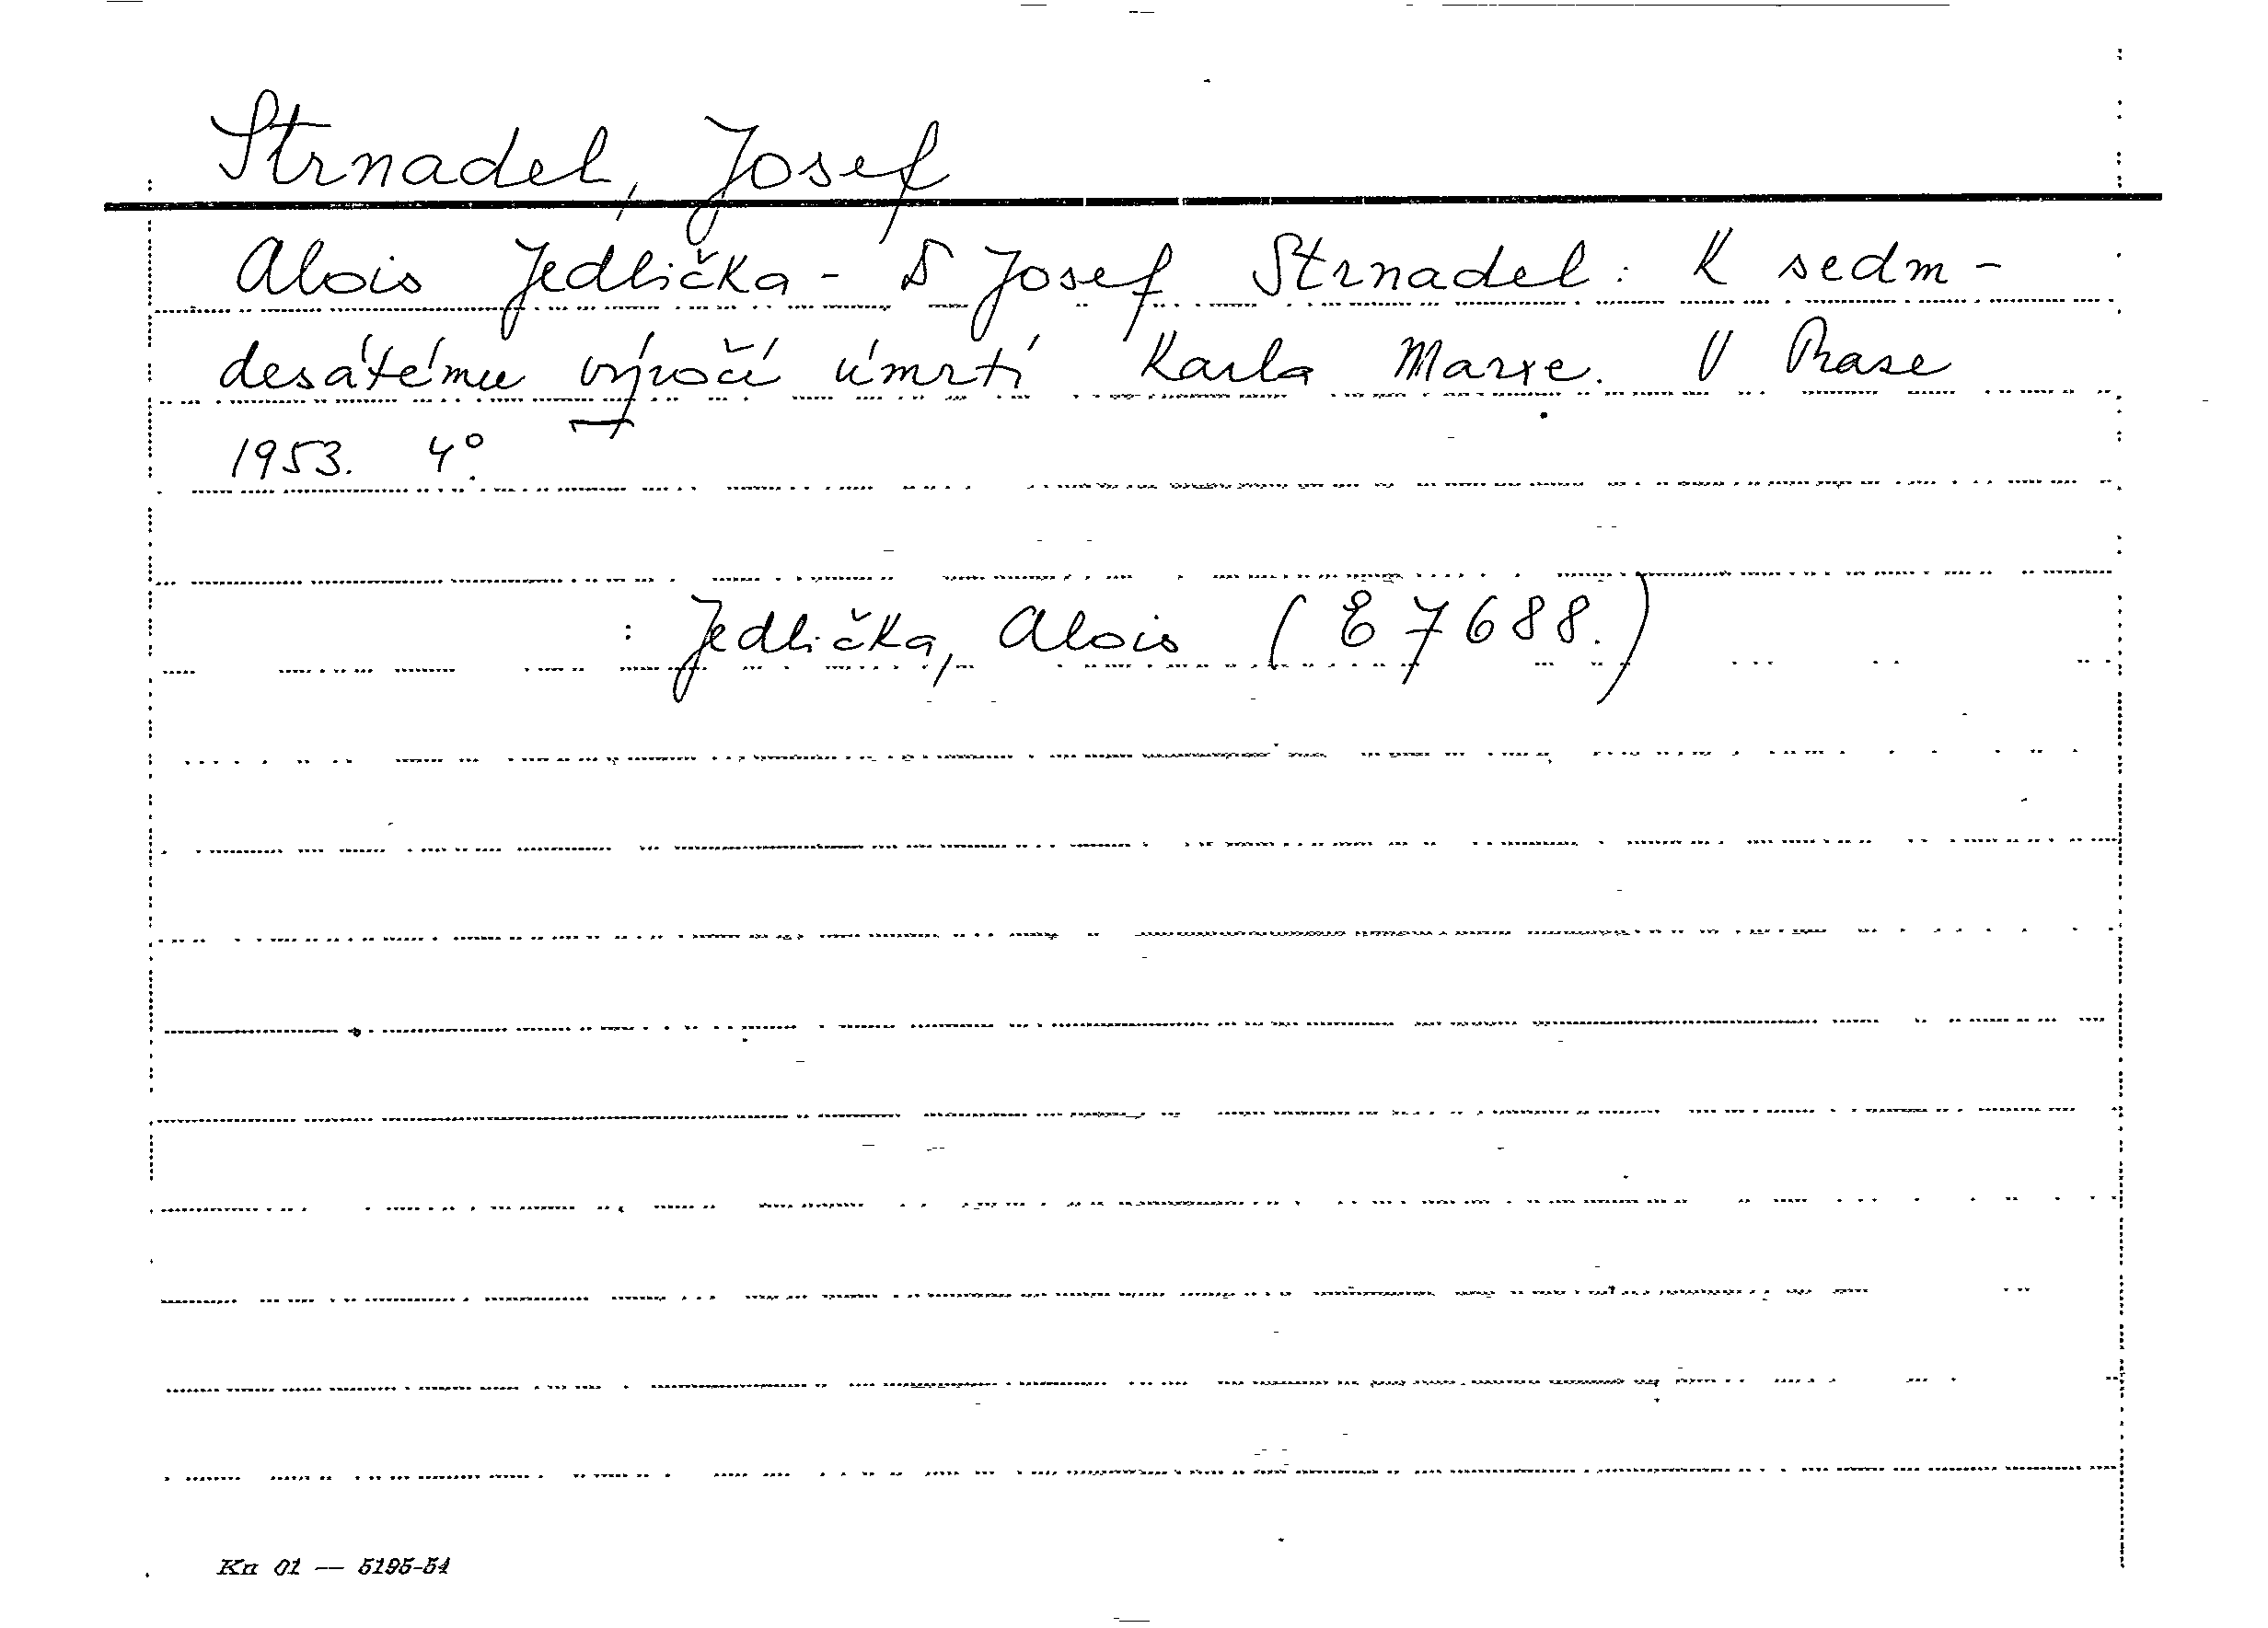 Strnadel, Josef
Alois Jedlička - S Josef Strnadel: K sedm-
desátému výročí úmrtí Karla Marxe. V Praze
1953. 4°.
: Jedlička, Alois (E 7688.)
Kn 01 — 5195-54